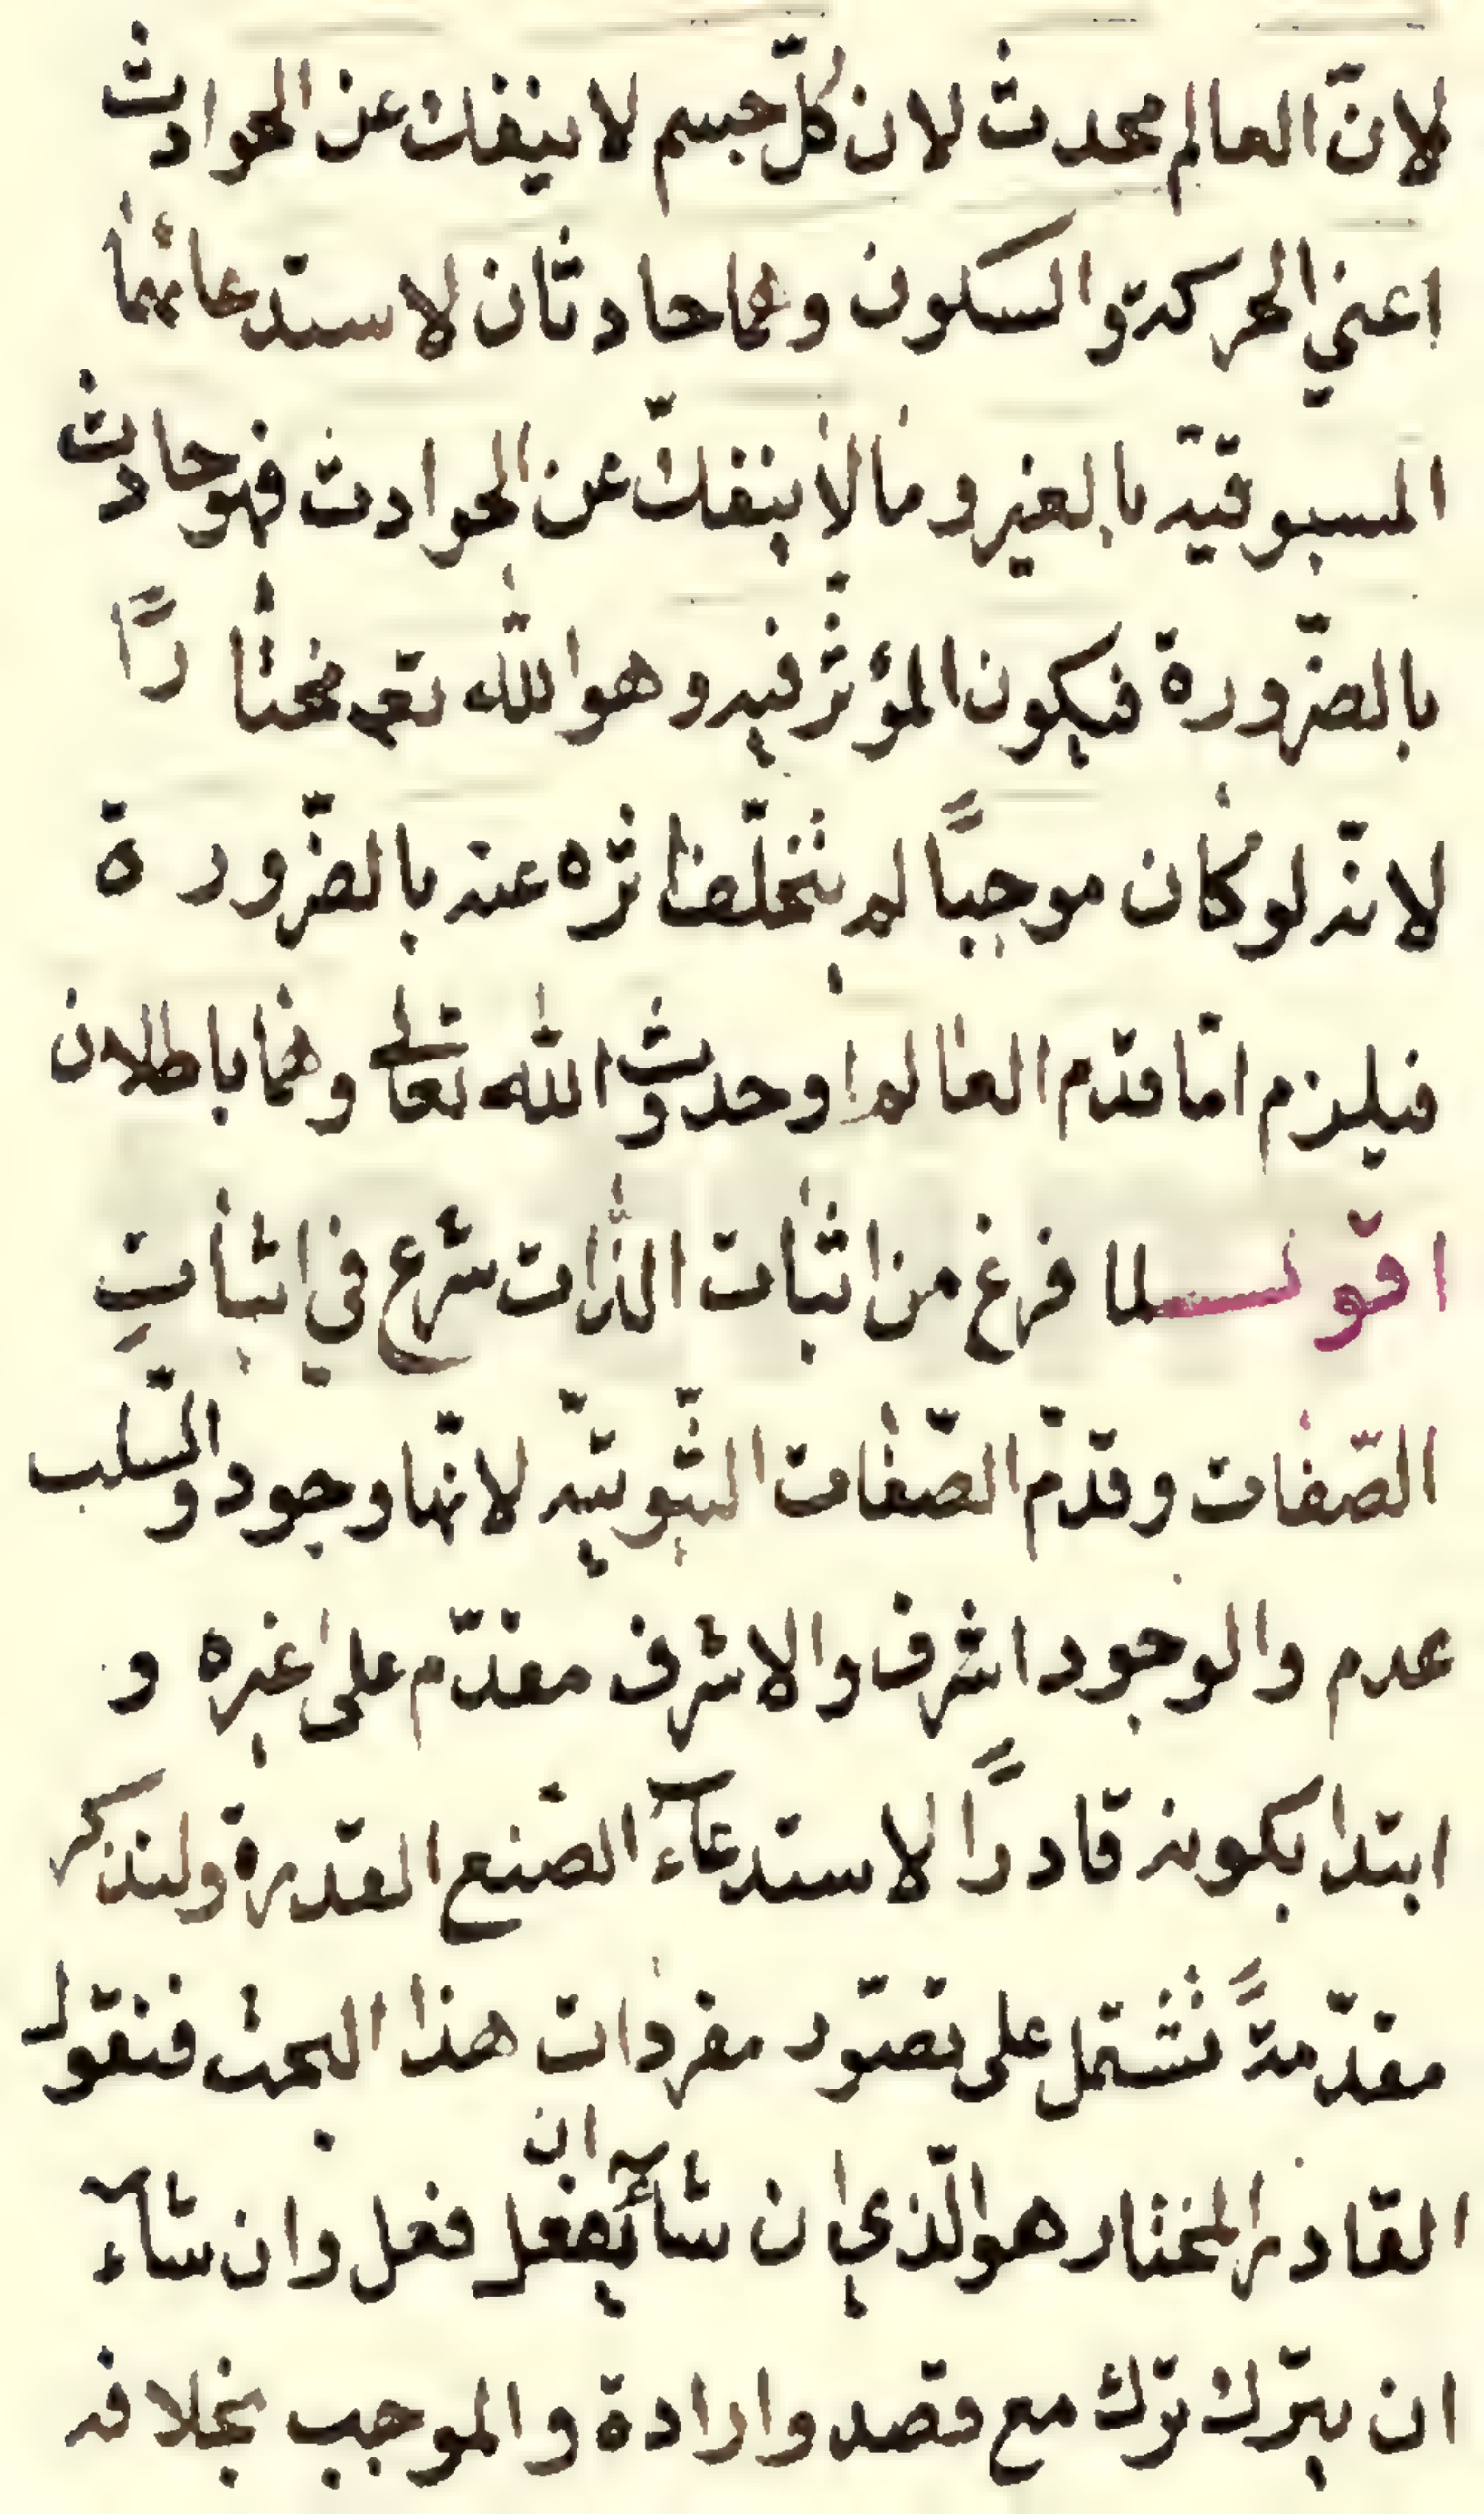 لانّ العالم محدث لان كلّ جسم لا ينفك عن الحوادث
اعني الحركة والسكون وهما حادثان لاستدعائهما
المسبوقيّة بالغير وما لا ينفكّ عن الحوادث فهو حادث
بالضّرورة فيكون المؤثّر فيه وهو الله تعم مختارًا
لانّه لو كان موجبًا لم يتخلّف اثره عنه بالضّرورة
فيلزم امّا قدّم العالم او حدوث الله تعالى وهما باطلان
اقول لما فرغ من اثبات الذّات شرع في اثباتِ
الصّفات وقدّم الصّفات الثّبوتيّه لانّها وجود والسّلب
عدم والوجود اشرف والاشرف مقدّم على غيره و
ابتدا بكونه قادرًا لاستدعآء الصّنع القدرة ولنذكر
مقدّمةً تشتمل على تصوّر مفردات هذا البحث فنقول
القادر المختار هو الّذي ان شآء ان يفعل فعل وان شآء
ان يترك ترك مع قصد وارادة والموجب بخلافه